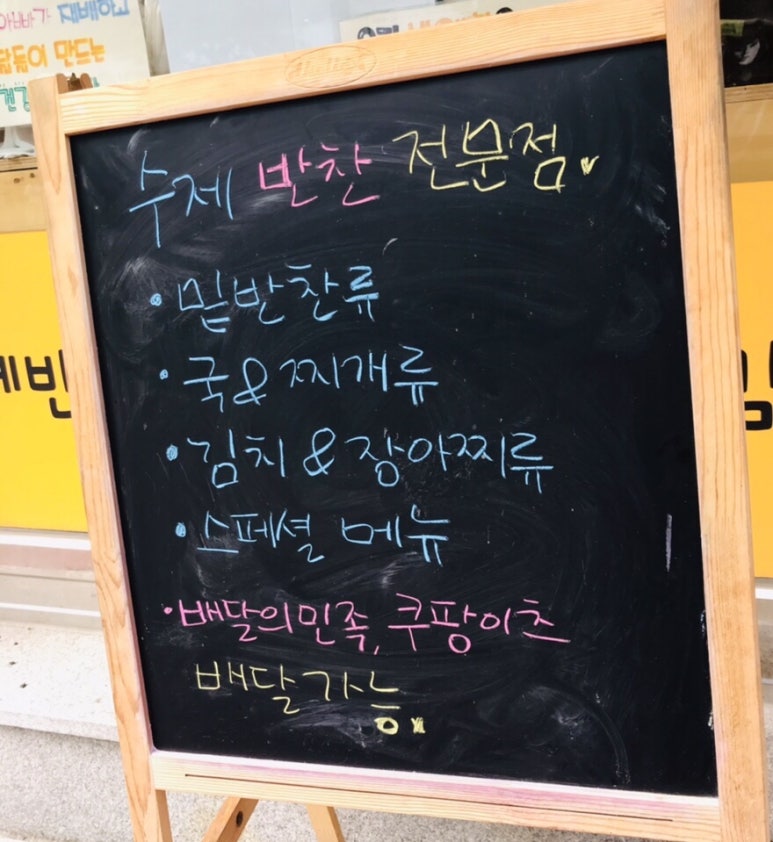 재배하고
만드는
수제 반찬 전문점.
• 밑반찬류
• 국&찌개류
• 김치 & 장아찌류
• 스페셜 메뉴
• 배달의민족, 쿠팡이츠
배달가능.